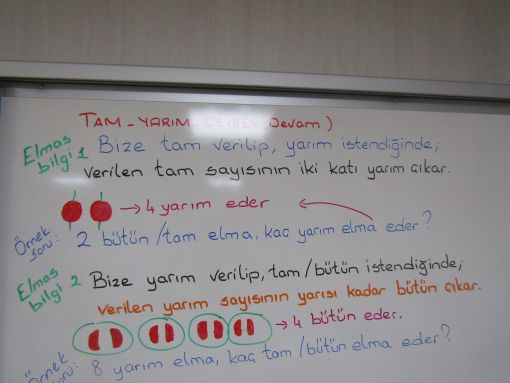 TAM - YARIM - ÇEYREK (Devam)
Elmas bilgi 1 Bize tam verilip, yarım istendiğinde;
verilen tam sayısının iki katı yarım çıkar.
→ 4 yarım eder
Örnek soru: 2 bütün/tam elma, kaç yarım elma eder?
Elmas bilgi 2 Bize yarım verilip, tam/bütün istendiğinde;
verilen yarım sayısının yarısı kadar bütün çıkar.
→ 4 bütün eder.
Örnek soru: 8 yarım elma, kaç tam/bütün elma eder?